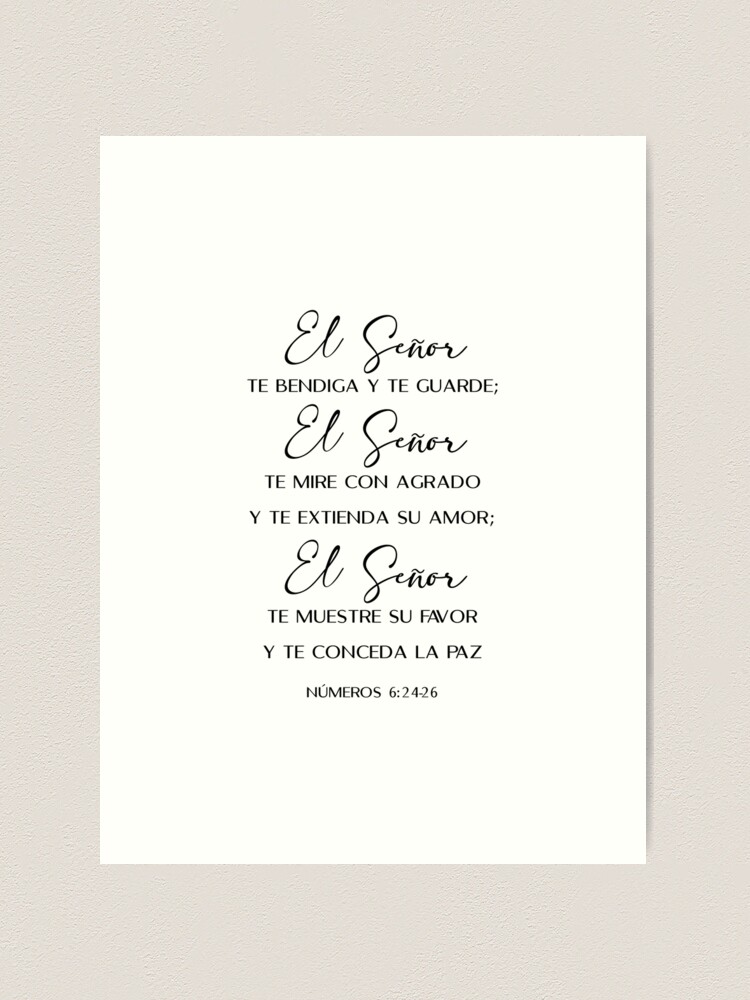 El Señor
TE BENDIGA Y TE GUARDE;
El Señor
TE MIRE CON AGRADO
Y TE EXTIENDA SU AMOR;
El Señor
TE MUESTRE SU FAVOR
Y TE CONCEDA LA PAZ
NÚMEROS 6:24-26